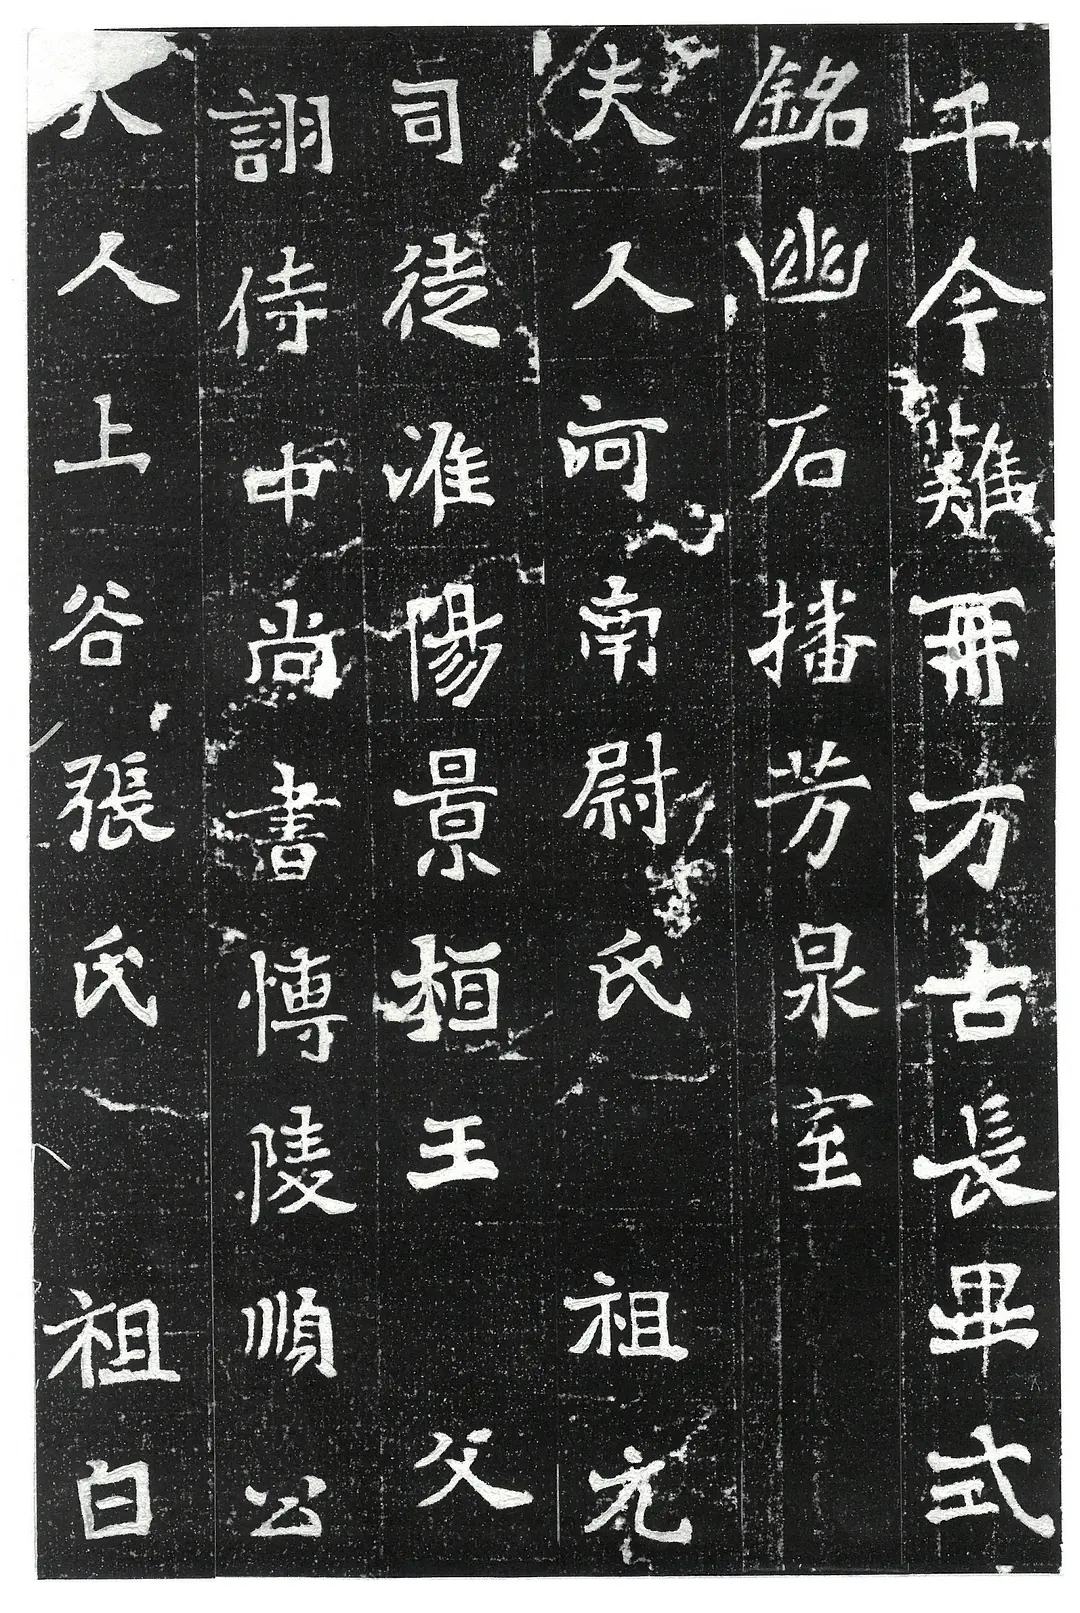 千今難再万古長畢式
銘幽石播芳泉室
夫人河南尉氏 祖元
司徒淮陽景桓王 父
詡侍中尚書博陵順公
夫人上谷張氏 祖白